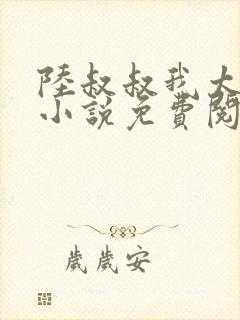 陸叔叔我大
小說免費閱
歲歲安